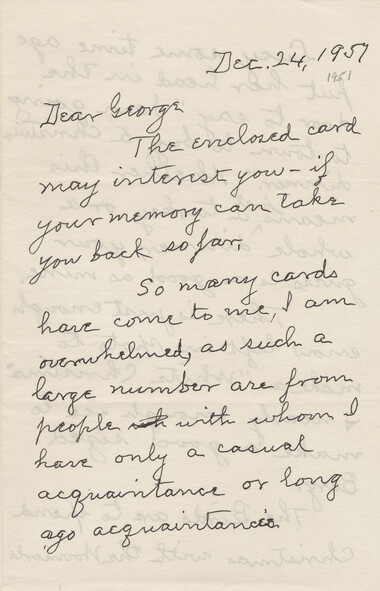 Dec. 24, 1957
1951
Dear George
The enclosed card
may interest you – if
your memory can take
you back so far.
So many cards
have come to me, I am
overwhelmed, as such a
large number are from
people with whom I
have only a casual
acquaintance or long
ago acquaintance.